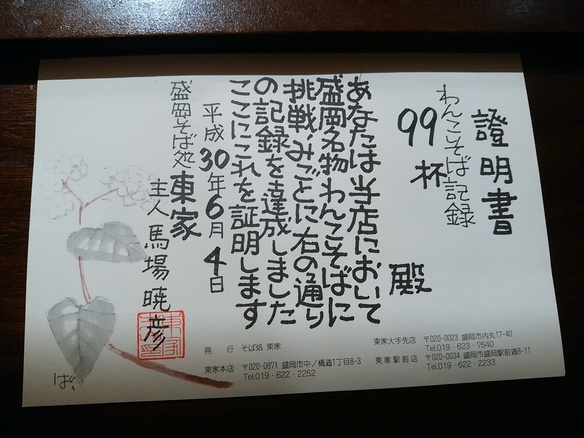 證明書
わんこそば記録
99杯
殿
あなたは当店において
盛岡名物わんこそばに
挑戦みごとに右の通り
の記録を達成しました
ここにこれを証明します
平成30年6月4日
盛岡そば処 東家
主人 馬場暁彦
発行 そば処 東家
東家本店 〒020-0871 盛岡市中ノ橋通1丁目8-3
Tel.019-622-2252
東家大手先店 〒020-0023 盛岡市内丸17-40
Tel.019-623-7540
東家駅前店 〒020-0034 盛岡市盛岡駅前通8-11
Tel.019-622-2233